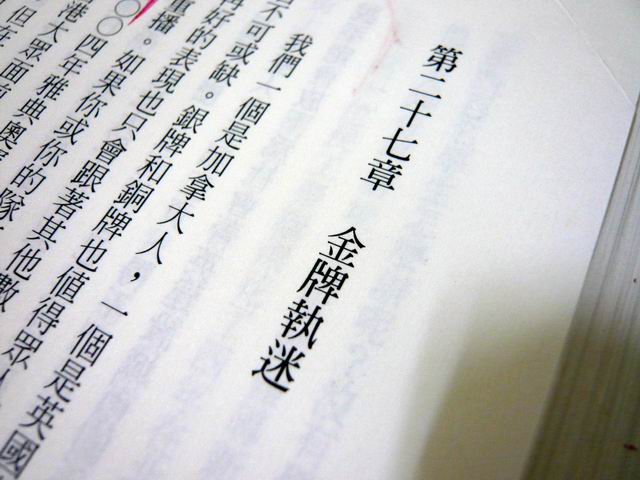 第二十七章 金牌執迷
我們一個是加拿大人，一個是英國
不可或缺。銀牌和銅牌也值得眾人
再好的表現也只會跟著其他數
重播。如果你或你的隊
四年雅典奧
港大眾面前
但在